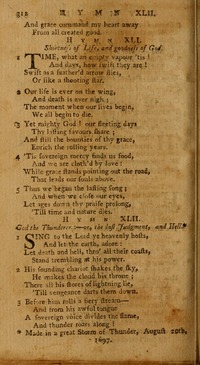 312 HYMN XLII.
And grace command my heart away
From all created good.
HYMN XLI.
Shortness of Life, and goodness of God.
1 TIME, what an empty vapour 'tis!
And days, how swift they are!
Swift as a feather'd arrow flies,
Or like a shooting star.
2 Our life is ever on the wing,
And death is ever nigh;
The moment when our lives begin,
We all begin to die.
3 Yet mighty God! our fleeting days
Thy lasting favours share;
And still the bounties of thy grace,
Enrich the rolling years.
4 'Tis sovereign mercy finds us food,
And we are cloth'd by love:
While grace stands pointing out the road,
That leads our souls above.
5 Thus we began the lasting song;
And when we close our eyes,
Let ages down thy praise prolong,
'Till time and nature dies.
HYMN XLII.
God the Thunderer:—or, the last Judgment, and Hell.*
1 SING to the Lord ye heavenly hosts,
And let the earth, adore:
Let death and hell, thro' all their coasts,
Stand trembling at his power.
2 His sounding chariot shakes the sky,
He makes the cloud his throne;
There all his stores of lightning lie,
'Till vengeance darts them down.
3 Before him rolls a fiery stream—
And from his awful tongue
A sovereign voice divides the flame,
And thunder roars along!
* Made in a great Storm of Thunder, August 20th,
1697.